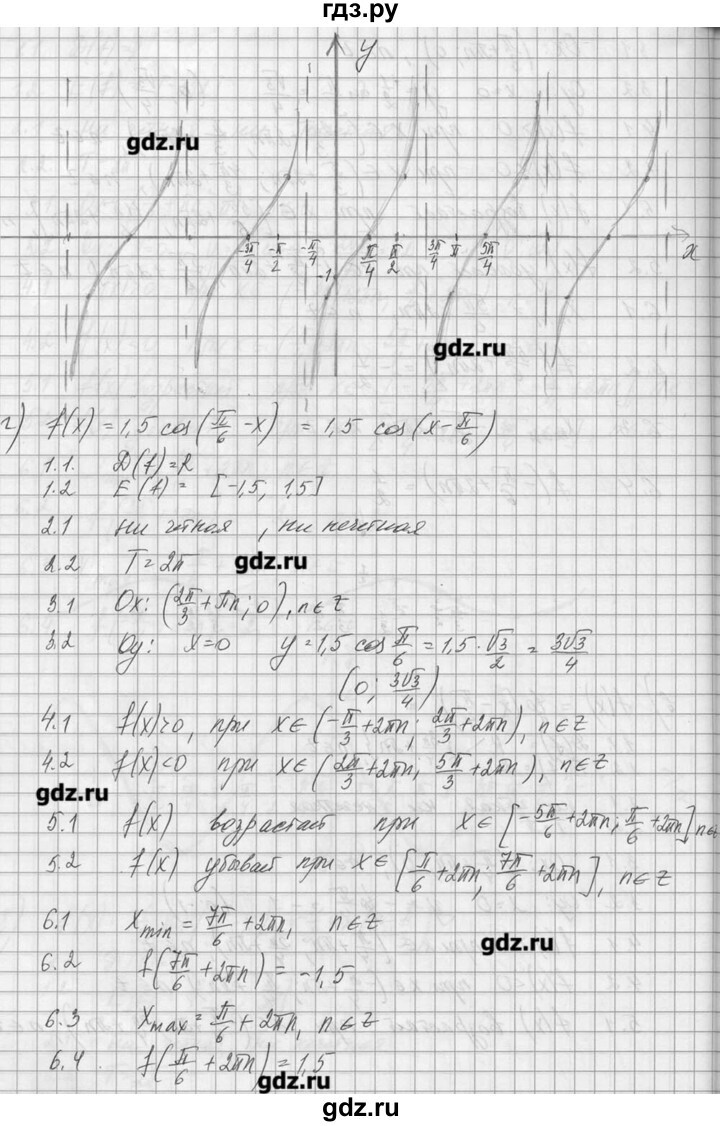 гдз.ру
y
gdz.ru
-3π/4 -π/2 -π/4 π/4 π/2 3π/4 π 5π/4 x
-1
gdz.ru
г) f(x) = 1,5 cos(π/6 - x) = 1,5 cos(x - π/6)
1.1. D(f) = R
1.2 E(f) = [-1,5, 1,5]
2.1 ни четная, ни нечетная
2.2 T = 2π
gdz.ru
3.1 Ox: (2π/3 + πn; 0), n∈Z
3.2 Oy: x=0 y = 1,5 cos π/6 = 1,5 · √3/2 = 3√3/4
(0; 3√3/4)
4.1 f(x)>0, при x∈(-π/3 + 2πn; 2π/3 + 2πn), n∈Z
4.2 f(x)<0 при x∈(2π/3 + 2πn, 5π/3 + 2πn), n∈Z
gdz.ru
5.1 f(x) возрастает при x∈[-5π/6 + 2πn; π/6 + 2πn] n∈Z
5.2 f(x) убывает при x∈[π/6 + 2πn; 7π/6 + 2πn], n∈Z
6.1 x min = 7π/6 + 2πn, n∈Z
gdz.ru
6.2 f(7π/6 + 2πn) = -1,5
6.3 x max = π/6 + 2πn, n∈Z
6.4. f(π/6 + 2πn) = 1,5
gdz.ru
gdz.ru